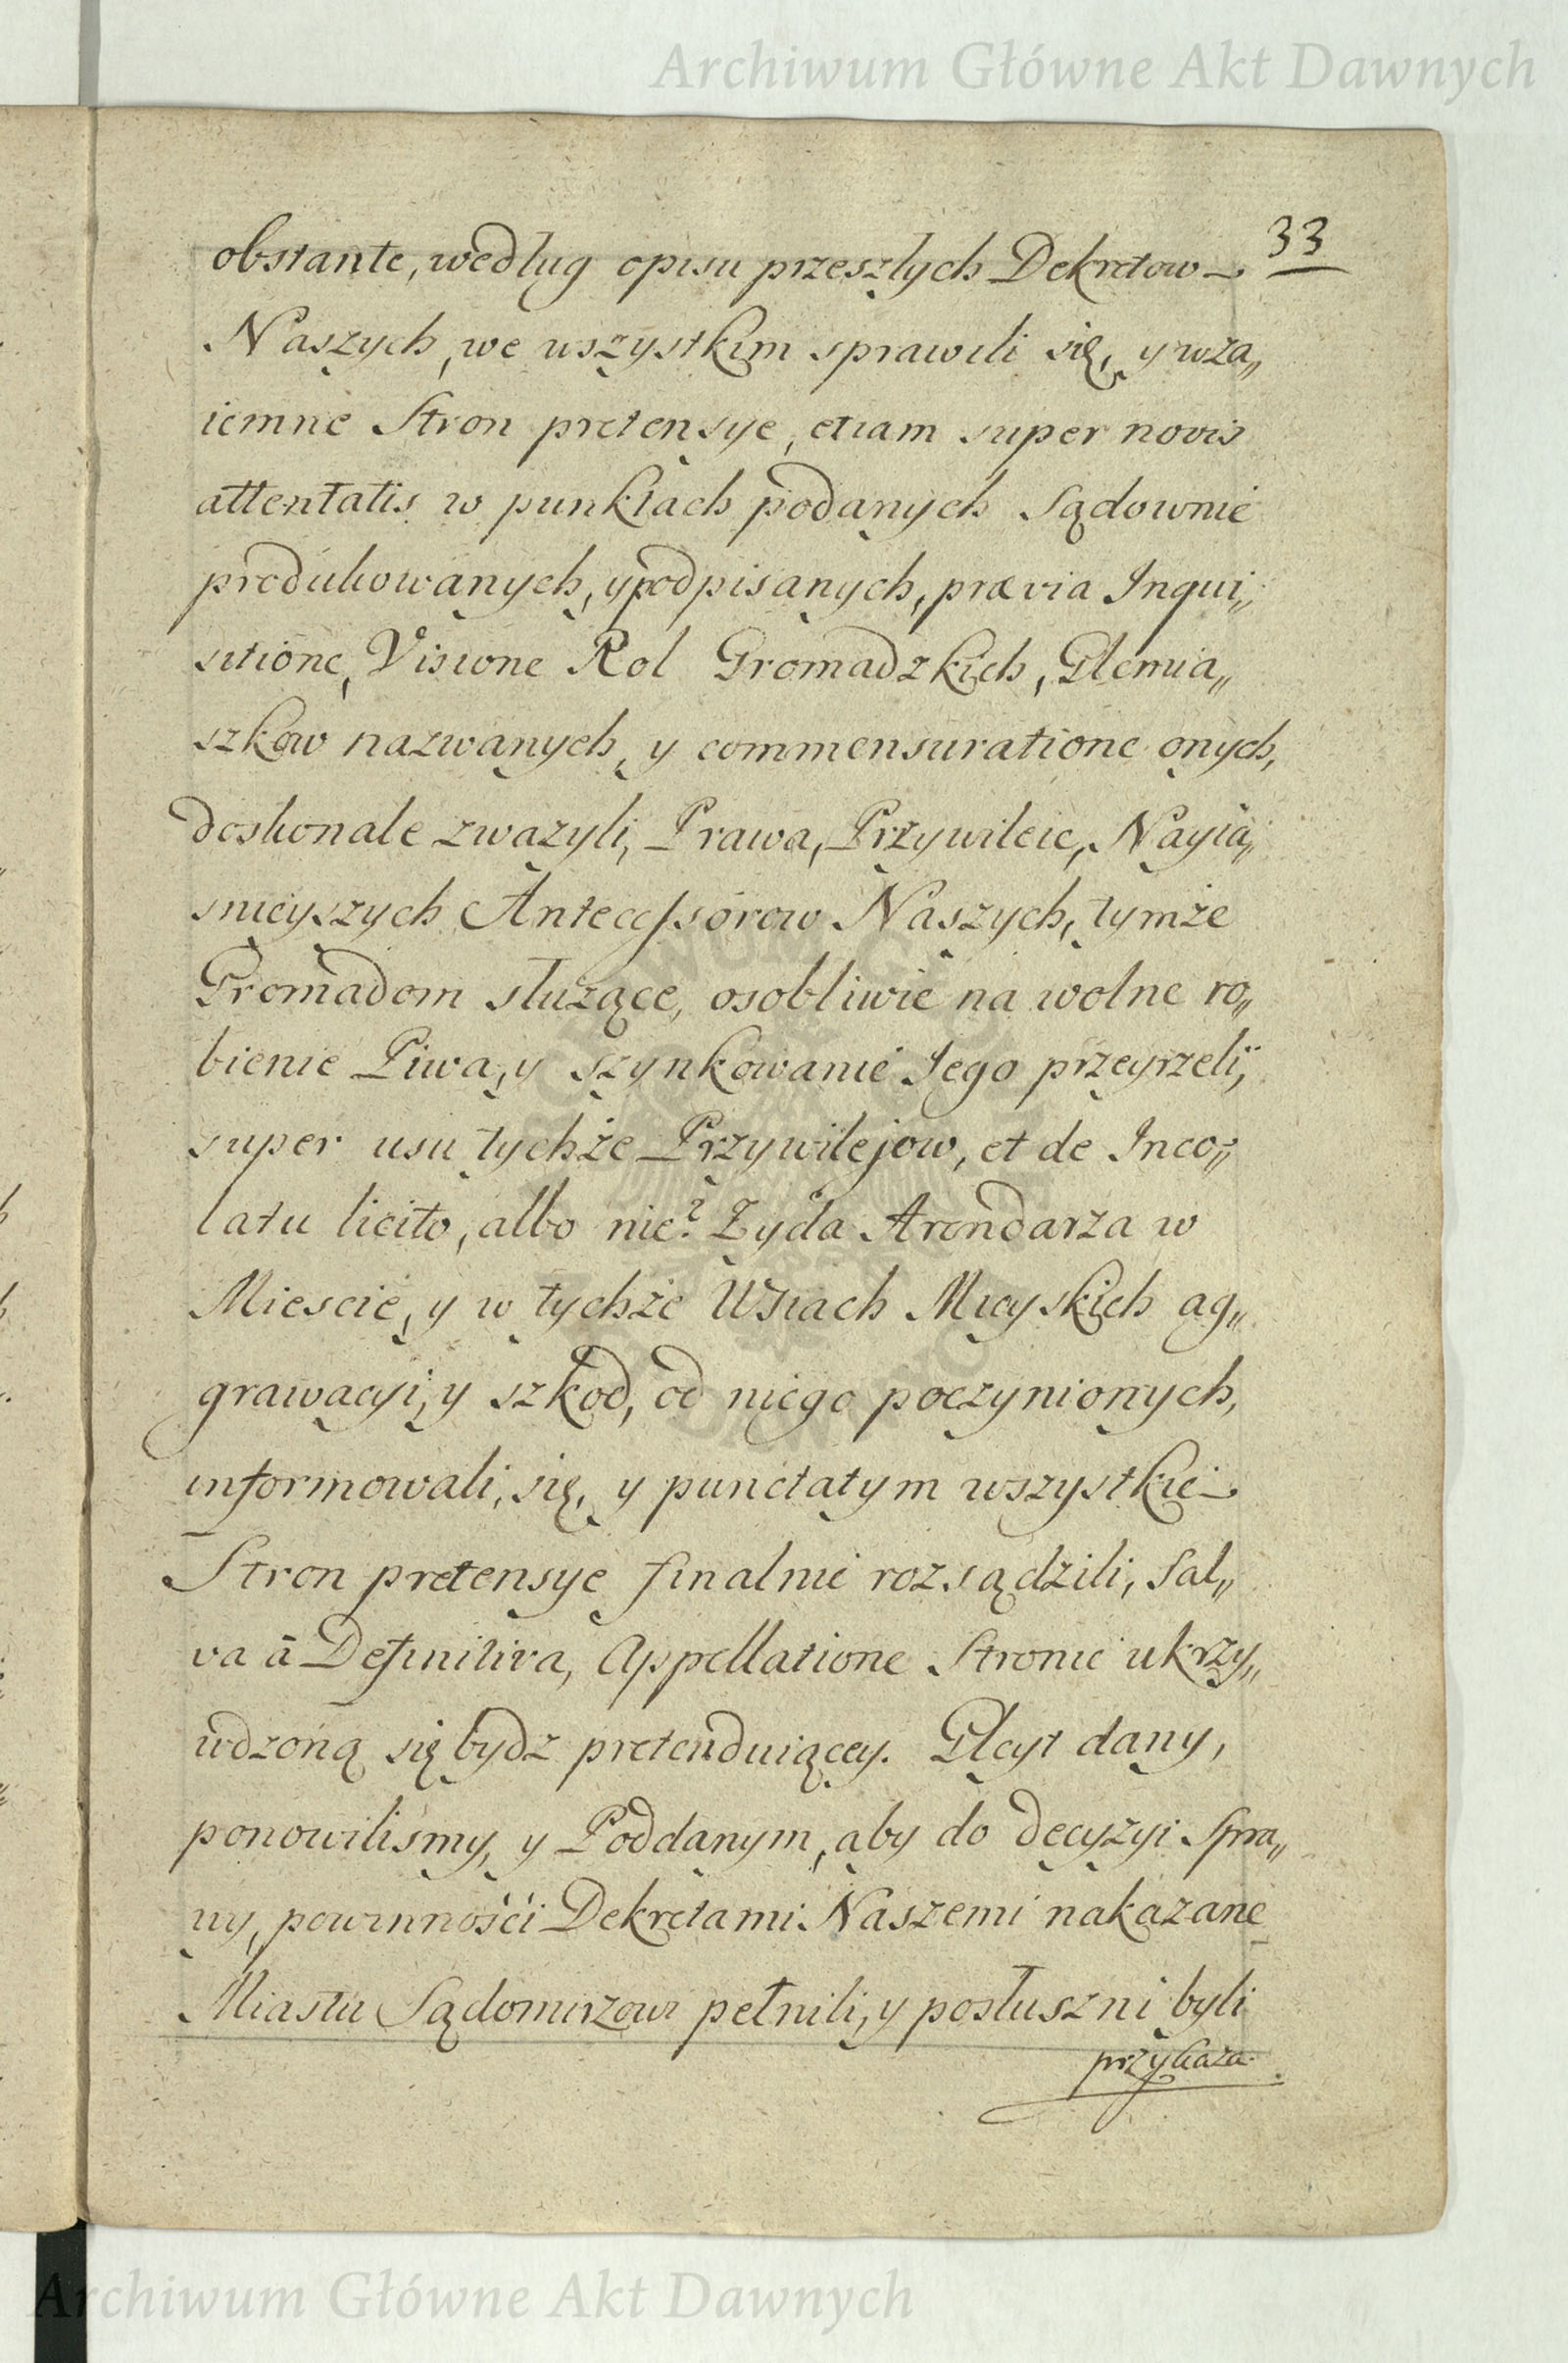 Archiwum Główne Akt Dawnych
33
obstante, według opisu przeszłych Dekretow
Naszych, we wszystkim sprawili się, y wza„
iemne Stron pretensye, etiam super novis
attentatis w punktach podanych Sądownie
produkowanych, y podpisanych, prævia Inqui„
sitione, Visione Rol Gromadzkich, Plemia„
szkow nazwanych, y commensuratione onych,
doskonale zwazyli, Prawa, Przywileie, Nayia„
snieyszych Antecessorow Naszych, tymże
Gromadom służące, osobliwie na wolne ro„
bienie Piwa, y szynkowanie Jego przeyrzeli,
super usu tychże Przywilejow, et de Inco„
latu licito, albo nie? Zyda Arendarza w
Miescie, y w tychże Wsiach Mieyskich ag„
grawacyi, y szkod, od niego poczynionych,
informowali się, y punctatym wszystkie
Stron pretensye finalnie rozsądzili, Sal„
va à Definitiva, Appellatione Stronie ukrzy„
wdzoną się bydz pretenduiącey. Gleyt dany,
ponowilismy, y Poddanym, aby do decyzyi Spra„
wy, powinnośći Dekretami Naszemi nakazane
Miastu Sądomirzowi pełnili, y posłuszni byli
przykaza
Archiwum Główne Akt Dawnych